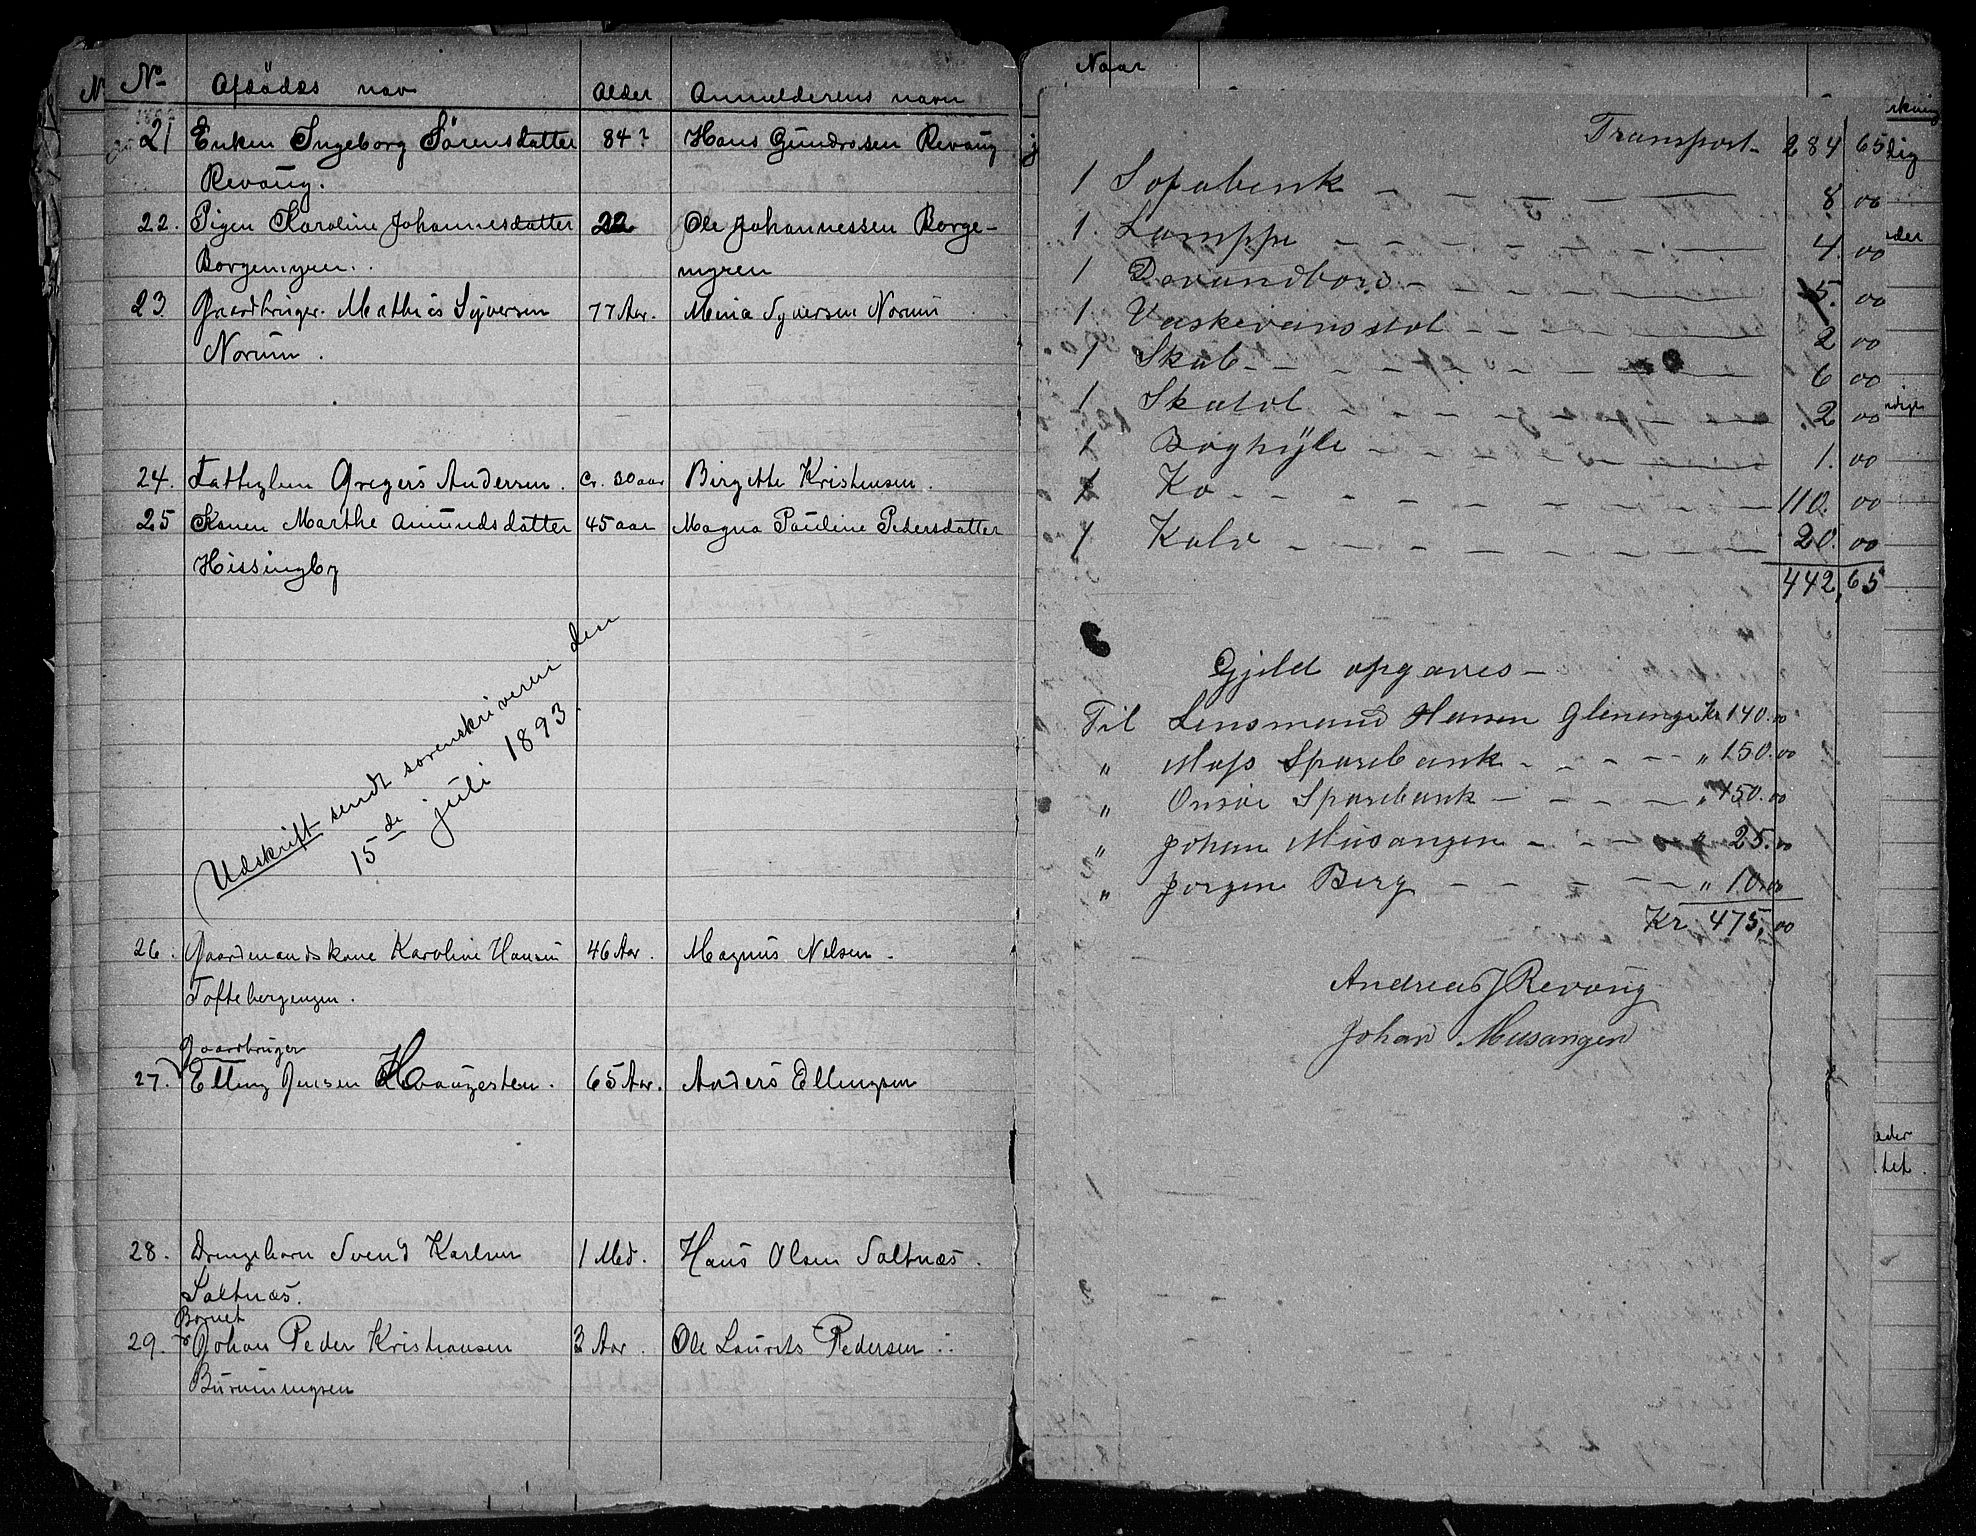 No Afdødes navn Alder Anmelderens navn
21 Enken Ingeborg Sørensdatter 84? Hans Gundrosen Revoug
Revoug.
22. Pigen Karoline Johannesdatter 22 Ole Johannessen Borge-
Borgemyren. myren
23. Gaardbruger Mathias Syversen 77 Aar. Mina Syversen Norum
Norum.
24. Fattiglem Gregers Andersen. cr. 80 aar Birgitte Kristensen.
25 Konen Marthe Amundsdatter 45 aar Magna Pauline Pedersdatter
Hissingby
Udskrift sendt sorenskriveren den
15de juli 1893.
26. Gaardmandskone Karoline Hansen 46 Aar. Magnus Nelsen.
Toftebergengen.
Gaardbruger
27. Elling Jensen Haaugesten. 65 Aar. Anders Ellingsen
28. Drengebarn Svend Karlsen 1 Md. Hans Olsen Saltnæs.
Saltnæs.
Barnet
29. Johan Peder Kristiansen 3 Aar. Ole Laurits Pedersen
Burummyren
Naar
Transport 284 65
1 Sofabenk 8 00
1 Lamppe 4. 00
1 Dovundbord 5. 00
1 Vaskevansstol 2 00
1 Skab 6 00
1 Skatol 2 00
1 Boghylle 1. 00
1 Ko 110. 00
1 Kalv 20. 00
442,65
Gjeld opgaves
Til Lensmand Hansen Glenenge Kr 140.00
" Moss Sparebank " 150.00
" Onsøe Sparebank " 150.00
" Johan Musangen " 25.00
" Jørgen Berg " 10.00
Kr 475,00
Andreas J Revoug
Johan Musangen